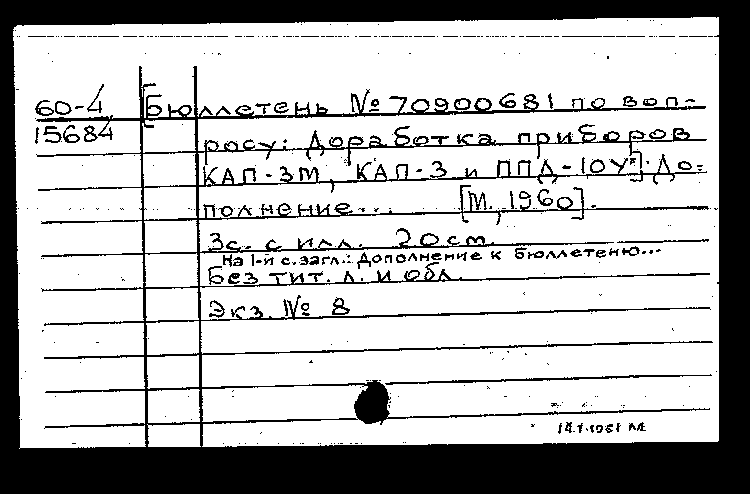 60-4
15684
[Бюллетень № 70900681 по воп-
росу: Доработка приборов
КАП-3М, КАП-3 и ППД-10У"]. До-
полнение... [М., 1960].
3с. с илл. 20см.
На 1-й с. загл.: Дополнение к бюллетеню...
Без тит. л. и обл.
Экз. № 8